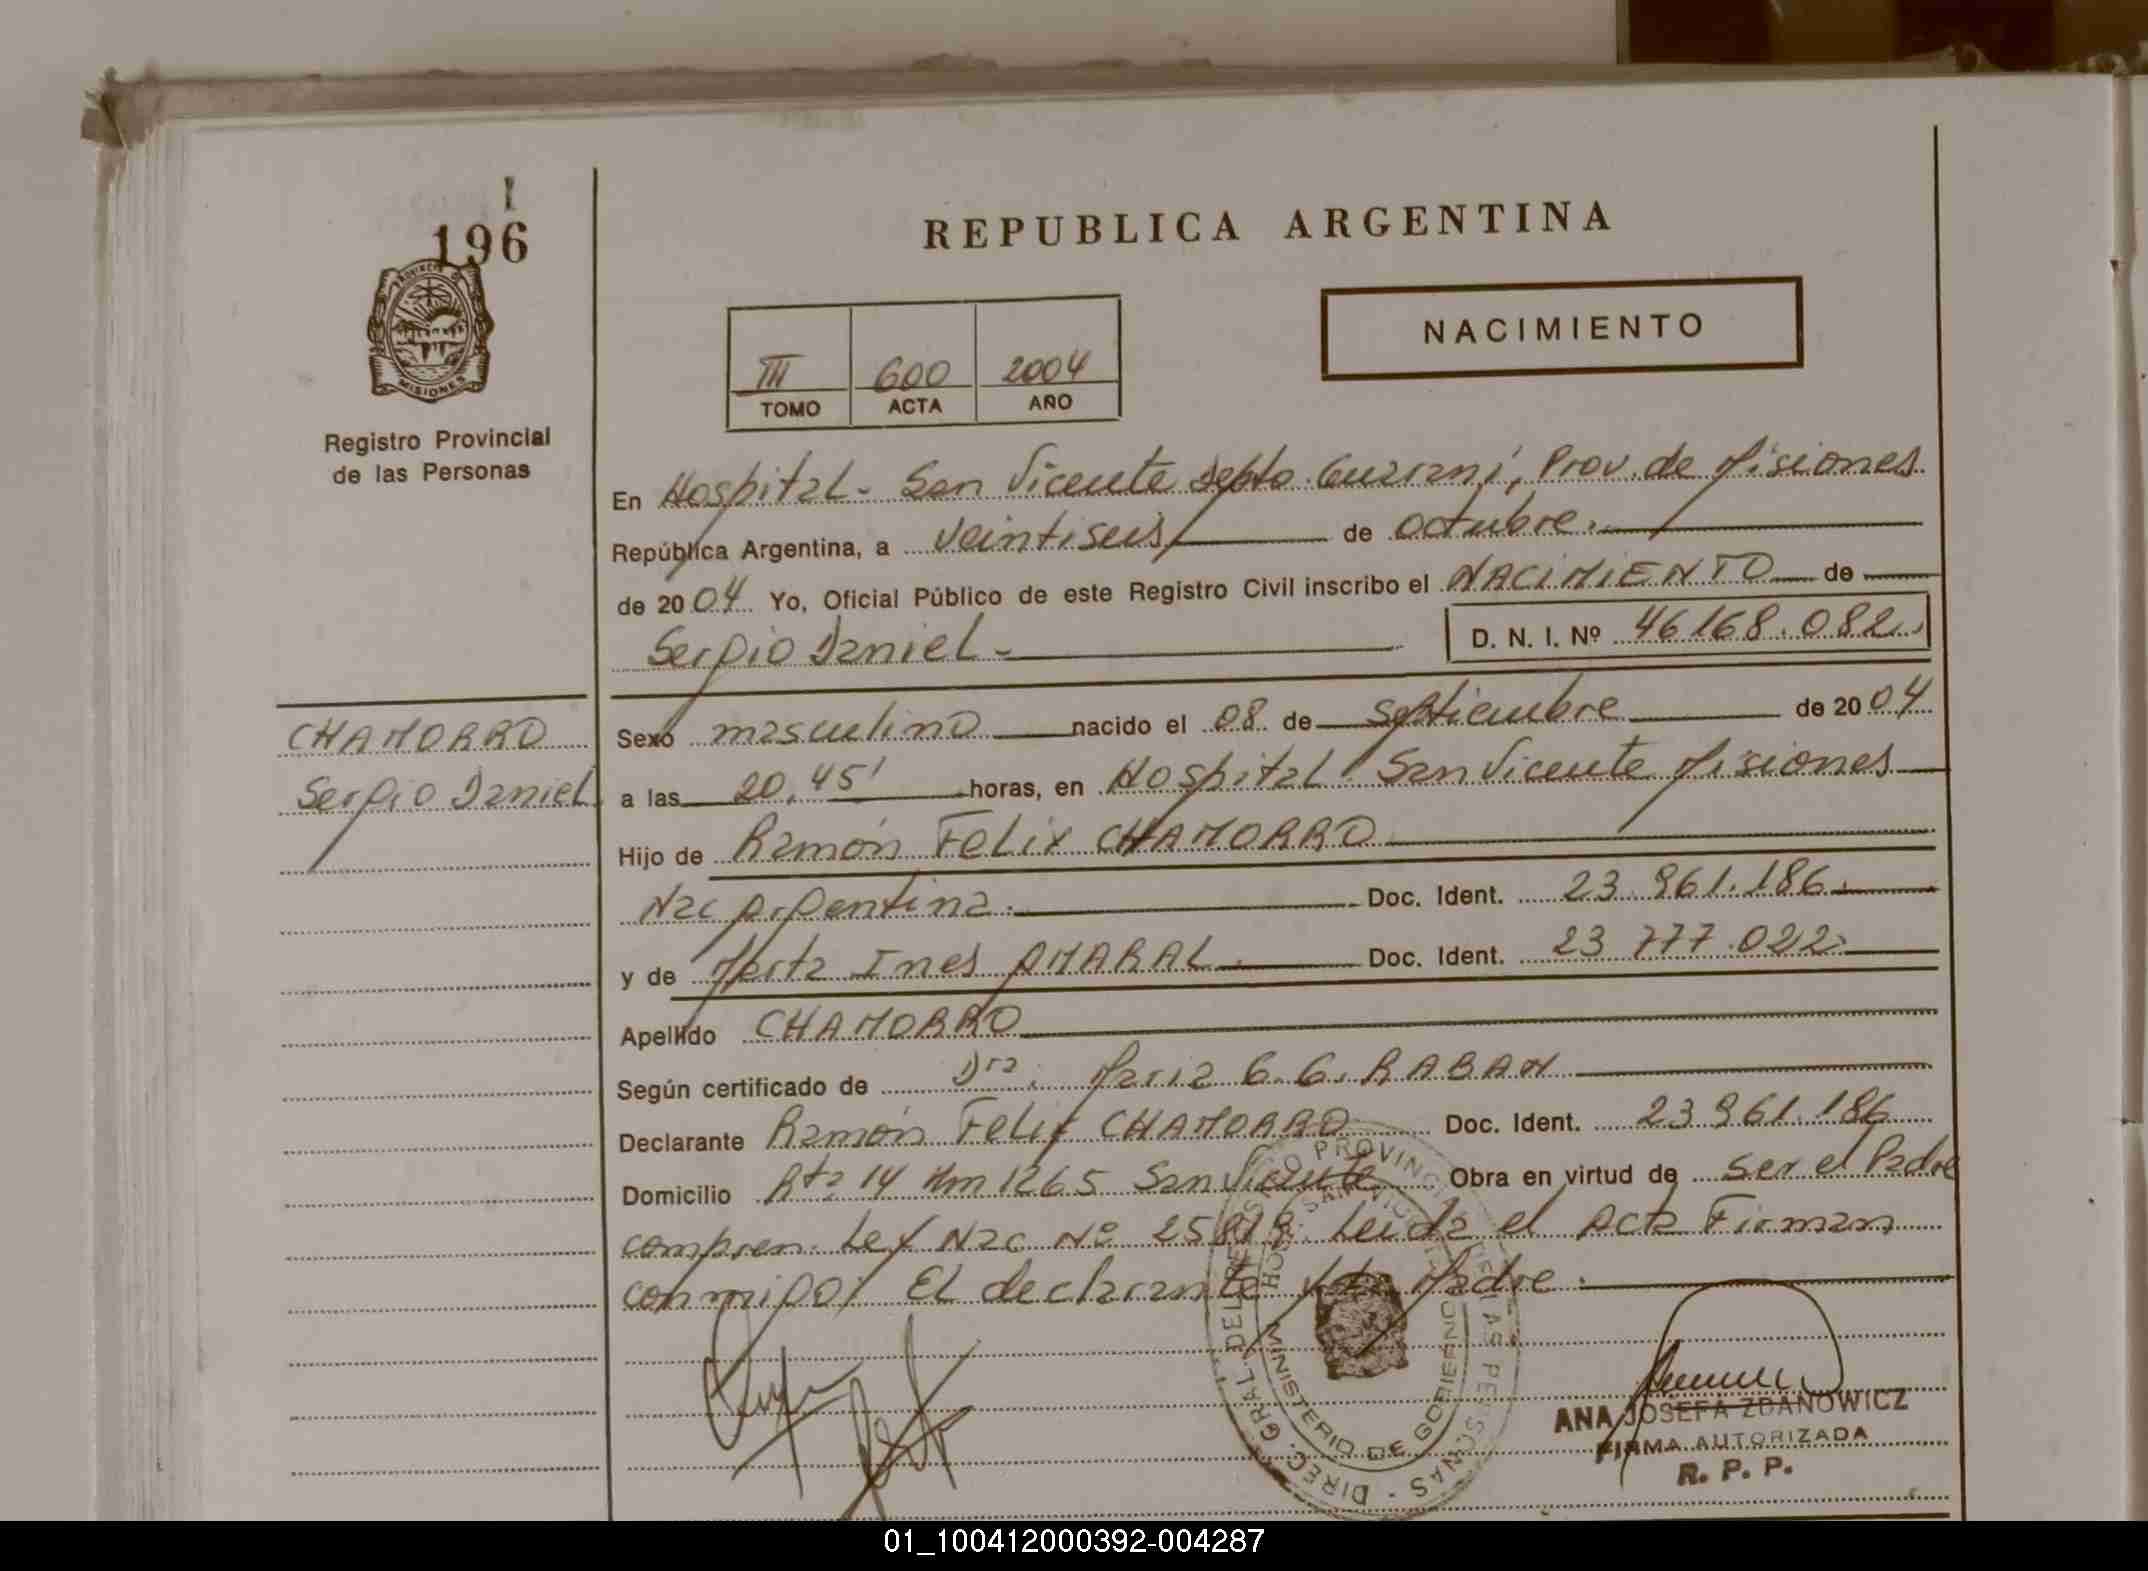 I
196
PROVINCIA DE
MISIONES
Registro Provincial
de las Personas
REPUBLICA ARGENTINA
NACIMIENTO
III 600 2004
TOMO ACTA AÑO
En Hospital - San Vicente Depto. Guaraní, Prov. de Misiones
República Argentina, a veintiseis de octubre.
de 2004 Yo, Oficial Público de este Registro Civil inscribo el NACIMIENTO de
Sergio Daniel - D. N. I. Nº 46168.082
CHAMORRO
Sergio Daniel
Sexo masculino nacido el 08 de septiembre de 2004
a las 20,45' horas, en Hospital San Vicente Misiones
Hijo de Ramón Felix CHAMORRO
Nac Argentina. Doc. Ident. 23.961.186.
y de Marta Ines AMARAL. Doc. Ident. 23 777.022
Apellido CHAMORRO
Según certificado de Dra. Maria G. G. RABAN
Declarante Ramón Felix CHAMORRO Doc. Ident. 23 961.186
Domicilio Rta 14 Km 1265 San Vicente Obra en virtud de ser el Padre
compren. Ley Nac Nº 25818. Leida el Acta Firman
conmigo: El declarante y la Madre.
DIREC. GRAL. DEL
MINISTERIO DE GOBIERNO
ANA JOSEFA ZDANOWICZ
FIRMA AUTORIZADA
R. P. P.
01_100412000392-004287